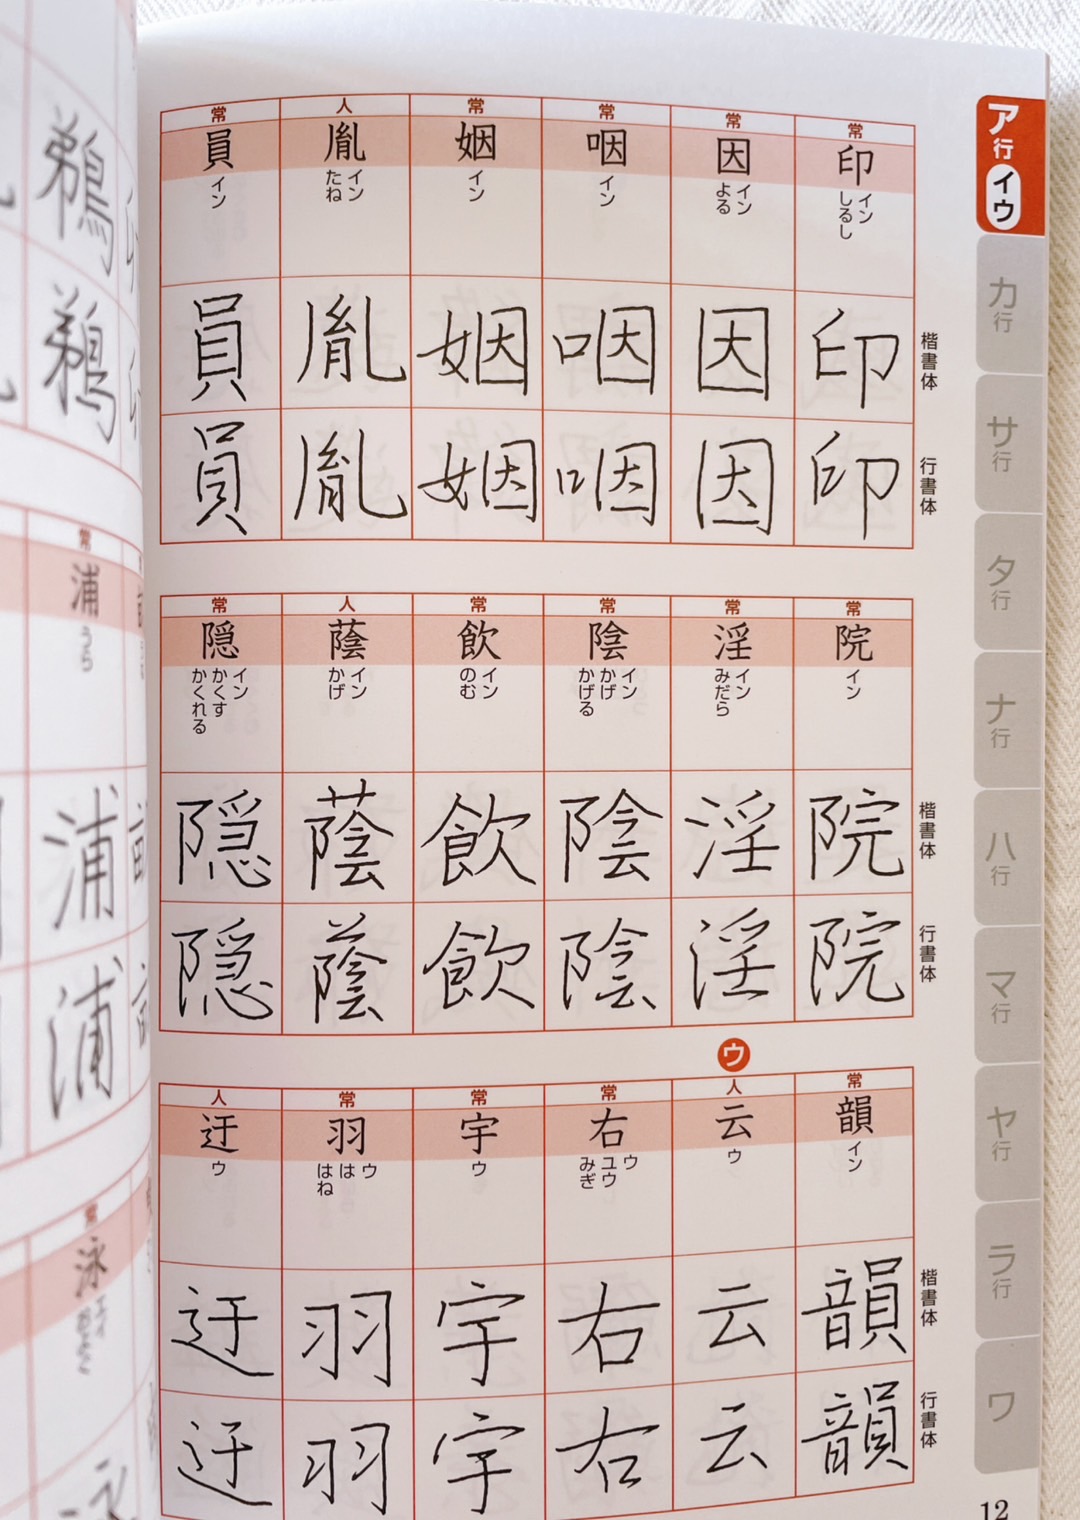 ア行 イウ
カ行
サ行
タ行
ナ行
ハ行
マ行
ヤ行
ラ行
ワ
常 印 イン しるし
常 因 イン よる
常 咽 イン
常 姻 イン
人 胤 イン たね
常 員 イン
楷書体 印 因 咽 姻 胤 員
行書体 印 因 咽 姻 胤 員
常 院 イン
常 淫 イン みだら
常 陰 イン かげ かげる
常 飲 イン のむ
人 蔭 イン かげ
常 隠 イン かくす かくれる
楷書体 院 淫 陰 飲 蔭 隠
行書体 院 淫 陰 飲 蔭 隠
常 韻 イン
ウ
人 云 ウ
常 右 ウ ユウ みぎ
常 宇 ウ
常 羽 ウ は はね
人 迂 ウ
楷書体 韻 云 右 宇 羽 迂
行書体 韻 云 右 宇 羽 迂
12
鵜
鵜
常 浦 うら
浦
浦
常 泳
泳